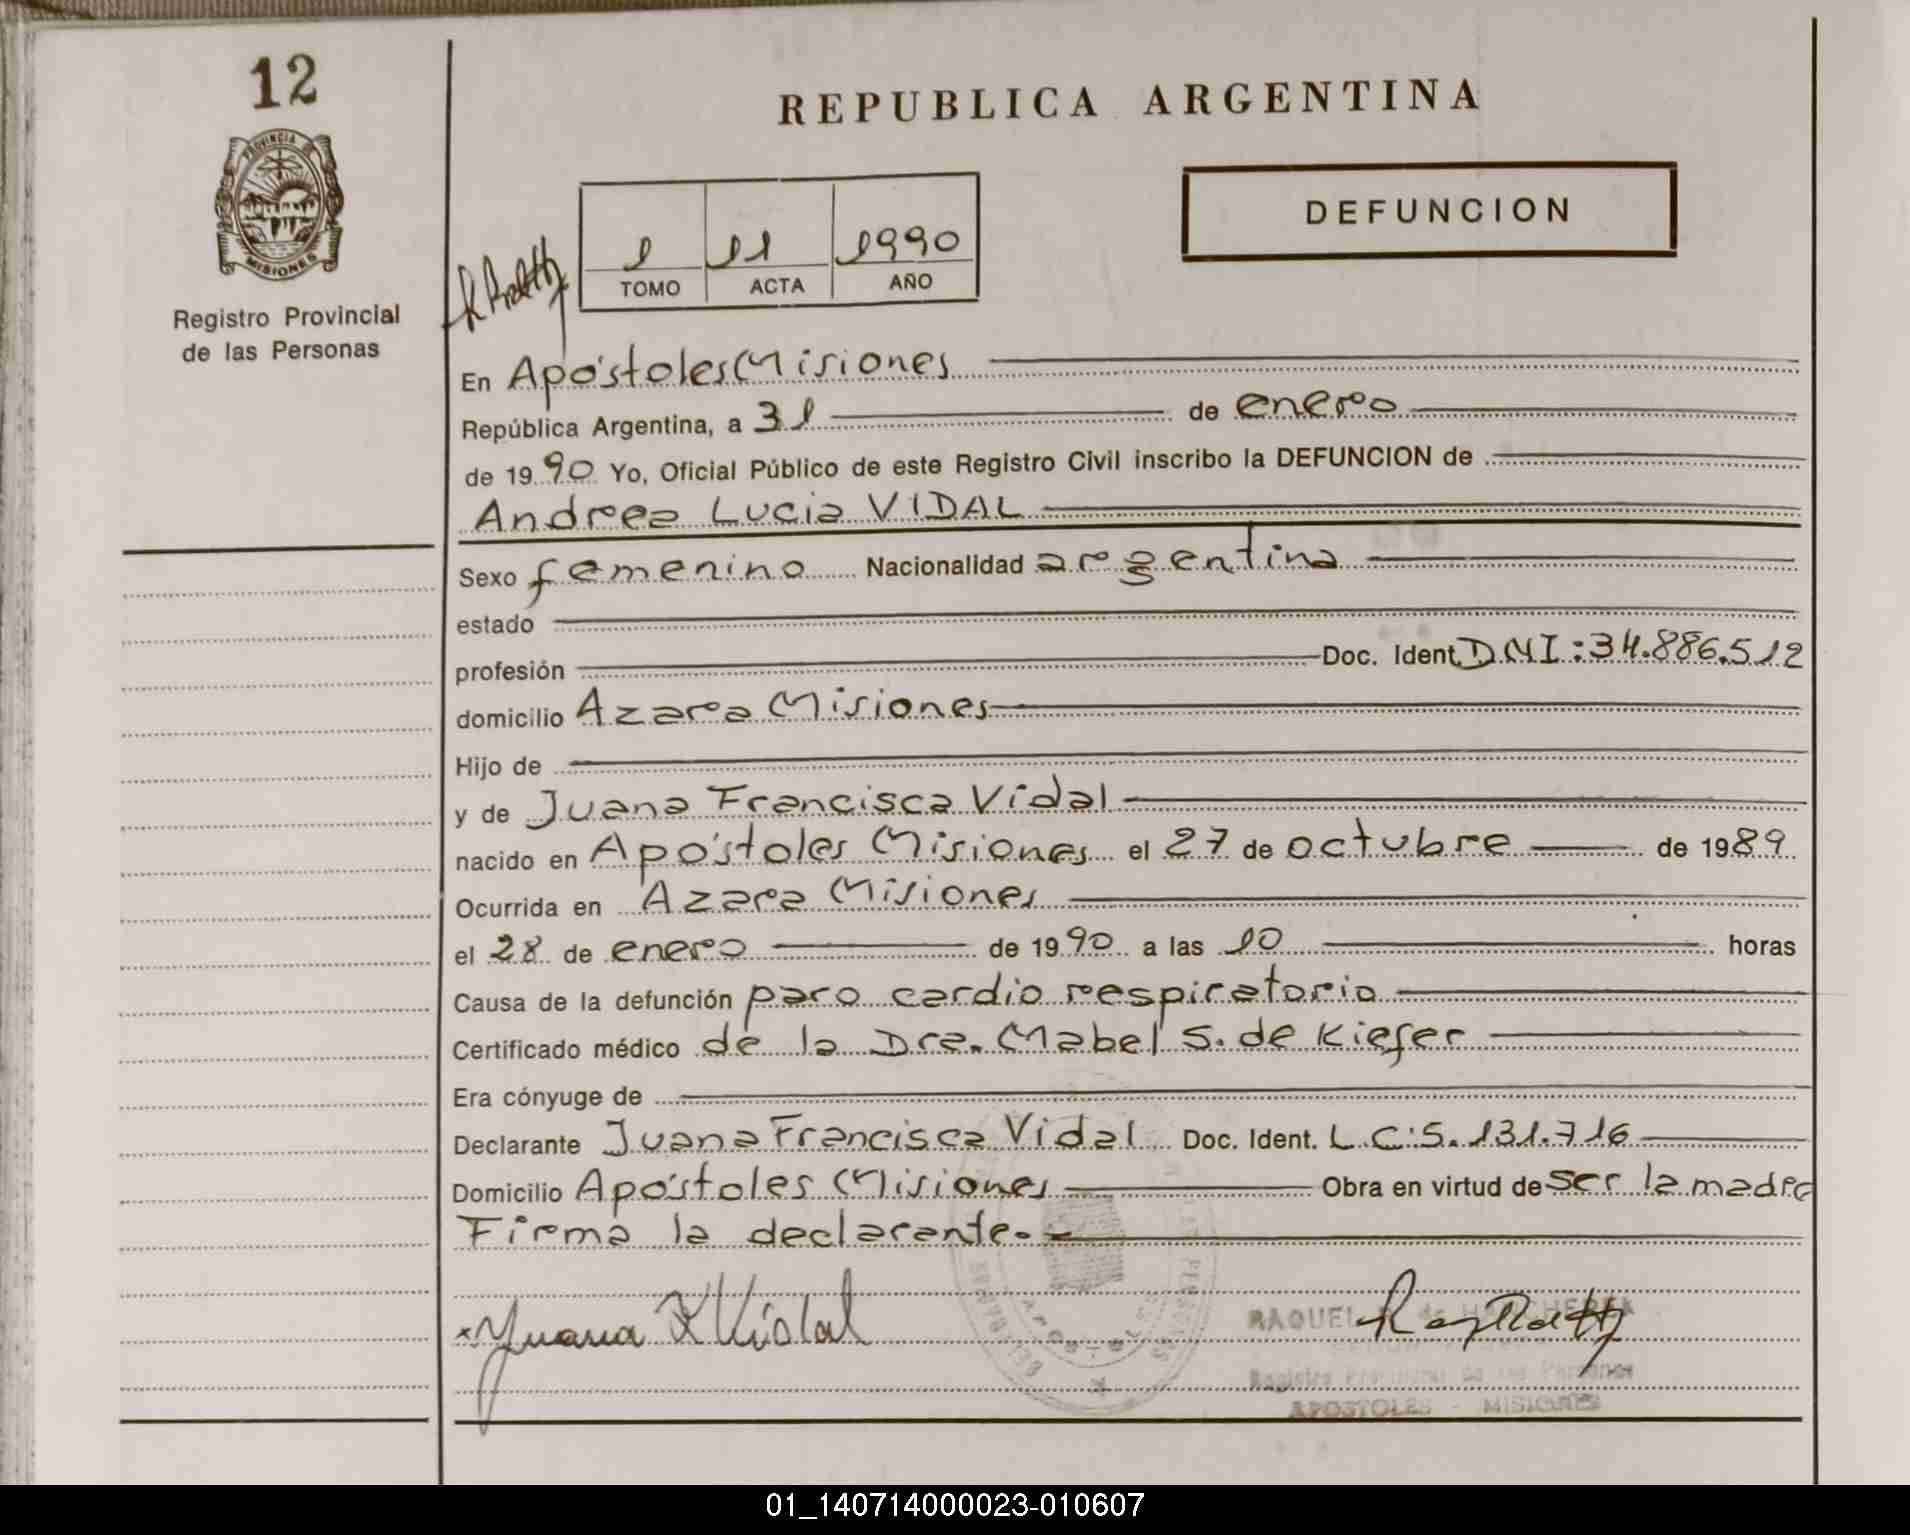 12
PROVINCIA DE
MISIONES
Registro Provincial
de las Personas
REPUBLICA ARGENTINA
DEFUNCION
1 11 1990
TOMO ACTA AÑO
En Apóstoles Misiones
República Argentina, a 31 de enero
de 1990 Yo, Oficial Público de este Registro Civil inscribo la DEFUNCION de
Andrea Lucia VIDAL
Sexo femenino Nacionalidad argentina
estado
profesión Doc. Ident. DNI: 34.886.512
domicilio Azara Misiones
Hijo de
y de Juana Francisca Vidal
nacido en Apóstoles Misiones el 27 de octubre de 1989
Ocurrida en Azara Misiones
el 28 de enero de 1990 a las 10 horas
Causa de la defunción paro cardio respiratorio
Certificado médico de la Dra. Mabel S. de Kiefer
Era cónyuge de
Declarante Juana Francisca Vidal Doc. Ident. L.C: 5.131.716
Domicilio Apóstoles Misiones Obra en virtud de ser la madre
Firma la declarante.-
x Juana F Vidal
RAQUEL de
Registro Provincial de las Personas
APOSTOLES - MISIONES
01_140714000023-010607